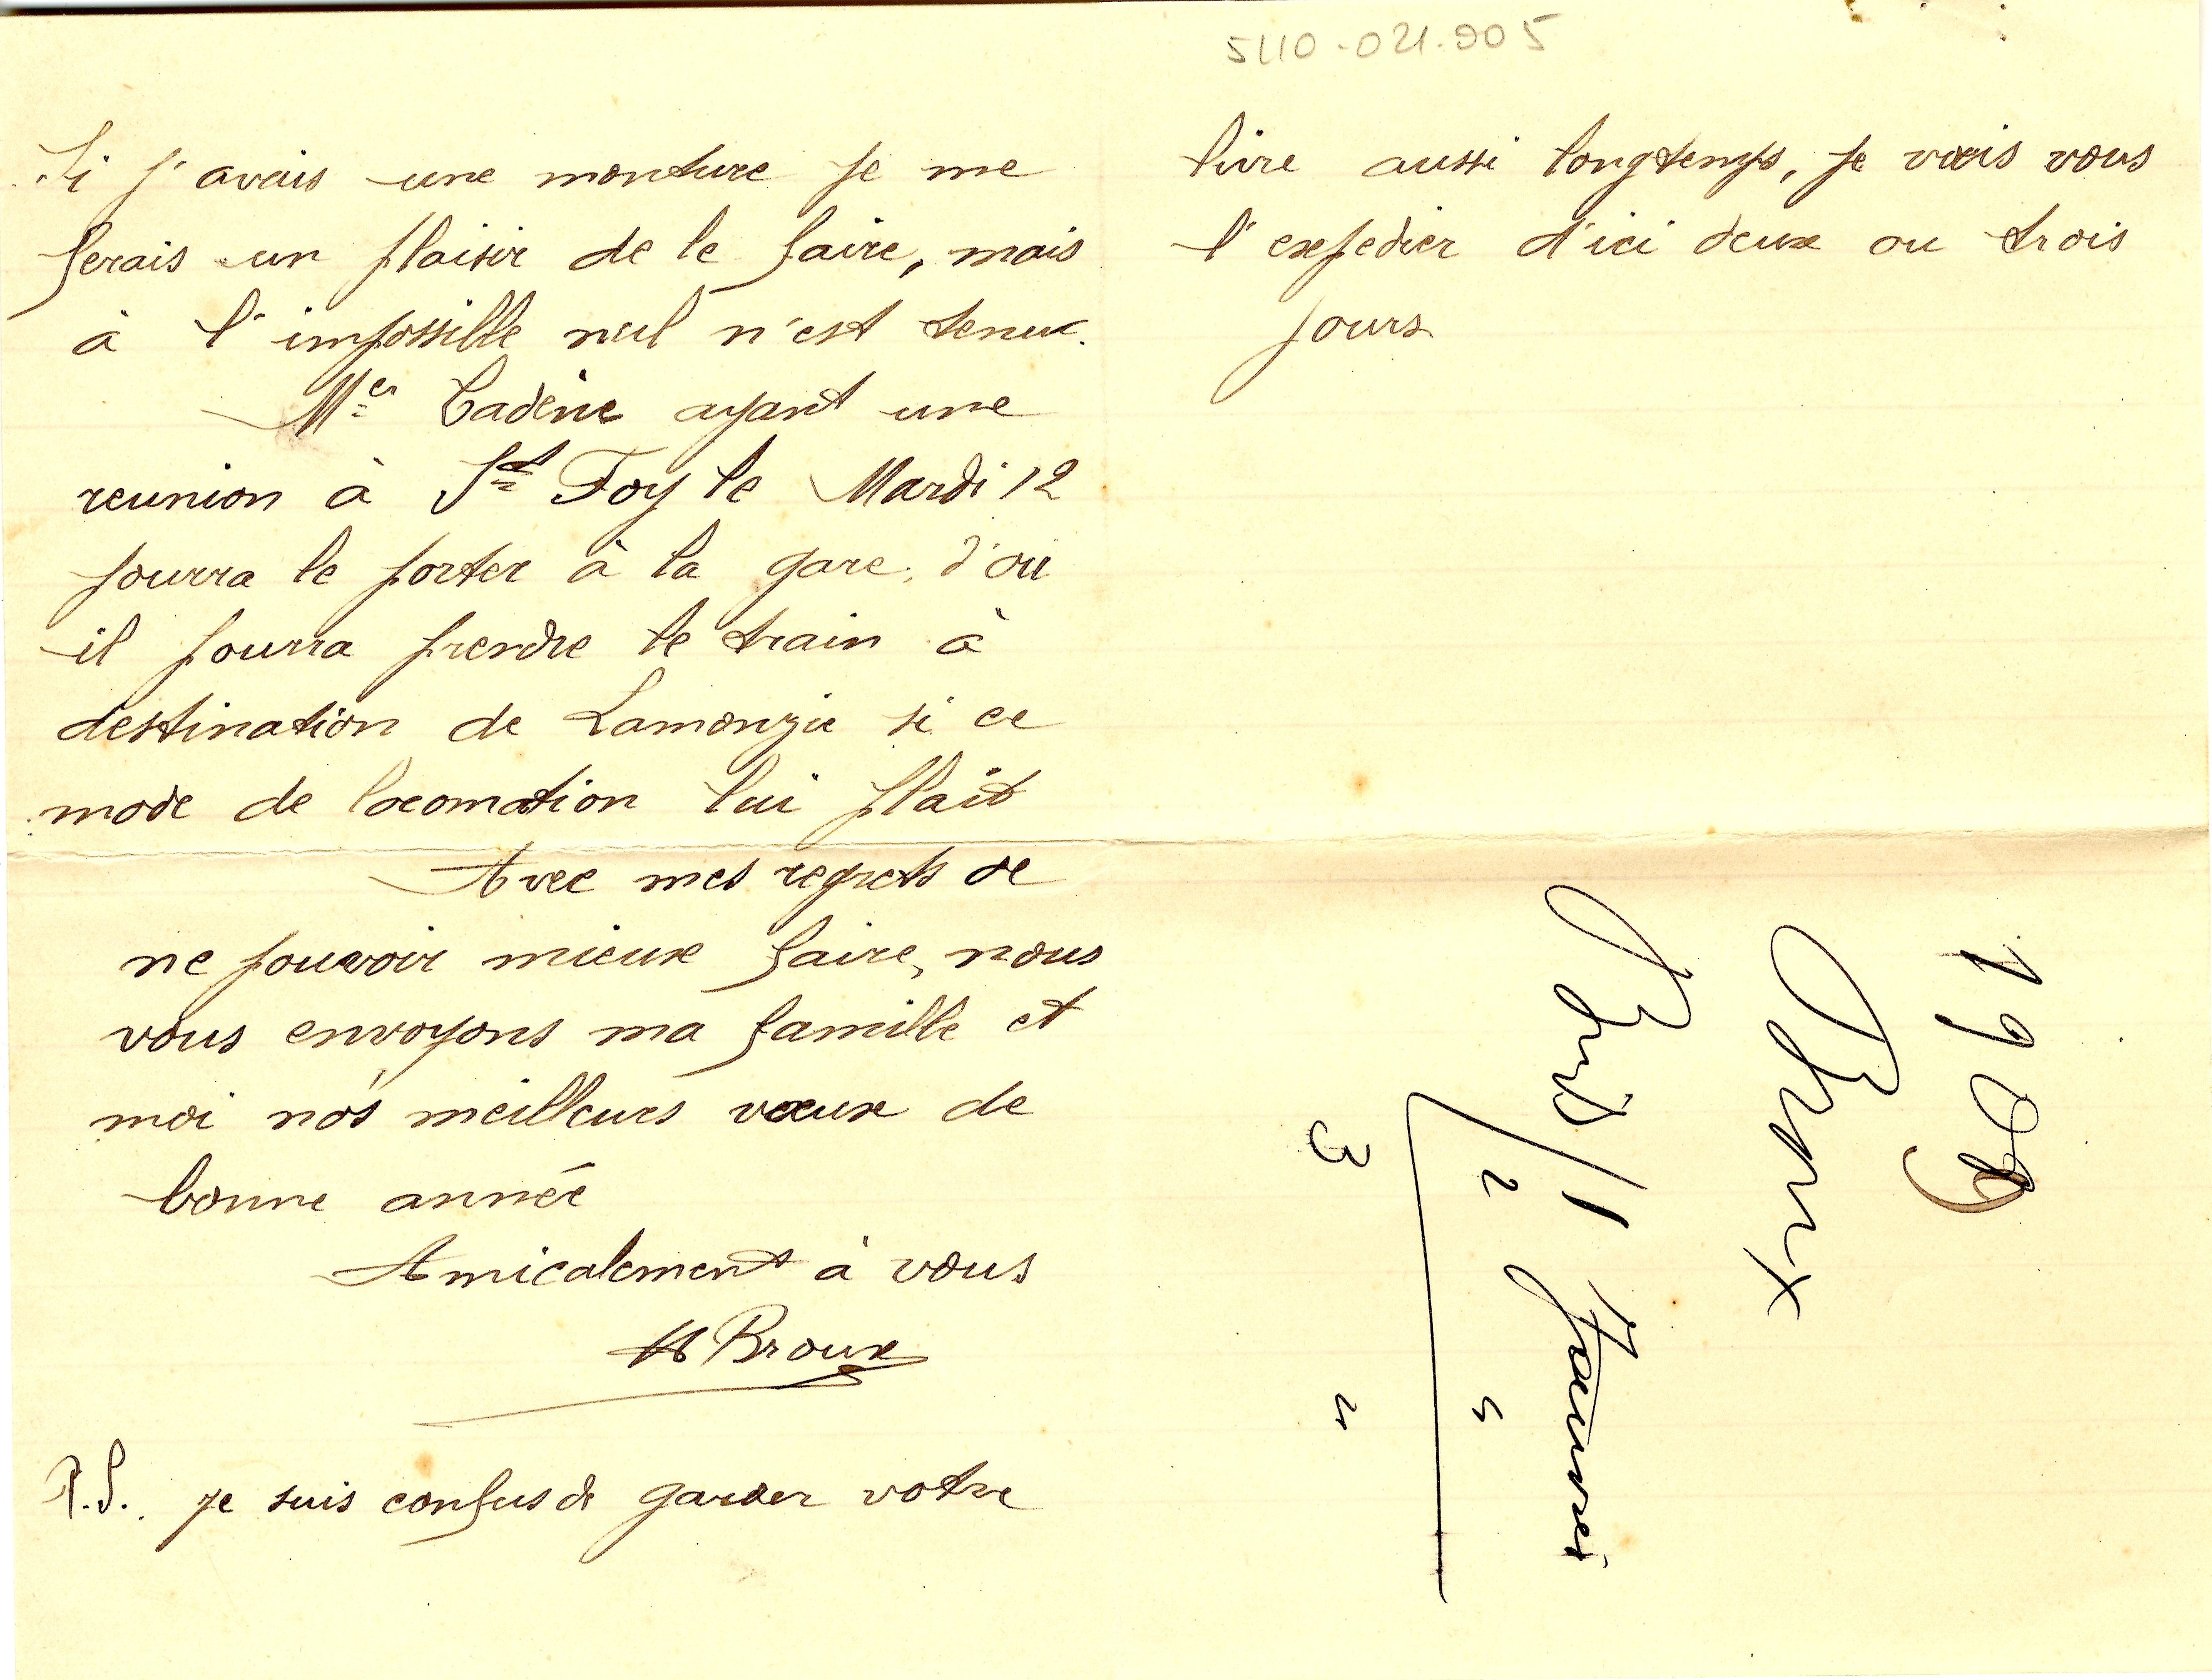 5110-021.005
Si j'avais une monture je me
ferais un plaisir de le faire, mais
à l'impossible nul n'est tenu.
Mer Cadène ayant une
reunion à Ste Foy le Mardi 12
pourra le porter à la gare, d'où
il pourra prendre le train à
destination de Lamonzie si ce
mode de locomotion lui plait
Avec mes regrets de
ne pouvoir mieux faire, nous
vous envoyons ma famille et
moi nos meilleurs vœux de
bonne année
Amicalement à vous
H Broux
P.S. je suis confus de garder votre
livre aussi longtemps, je vais vous
l'expedier d'ici deux ou trois
jours
1909
Broux
1
2 "
3 "